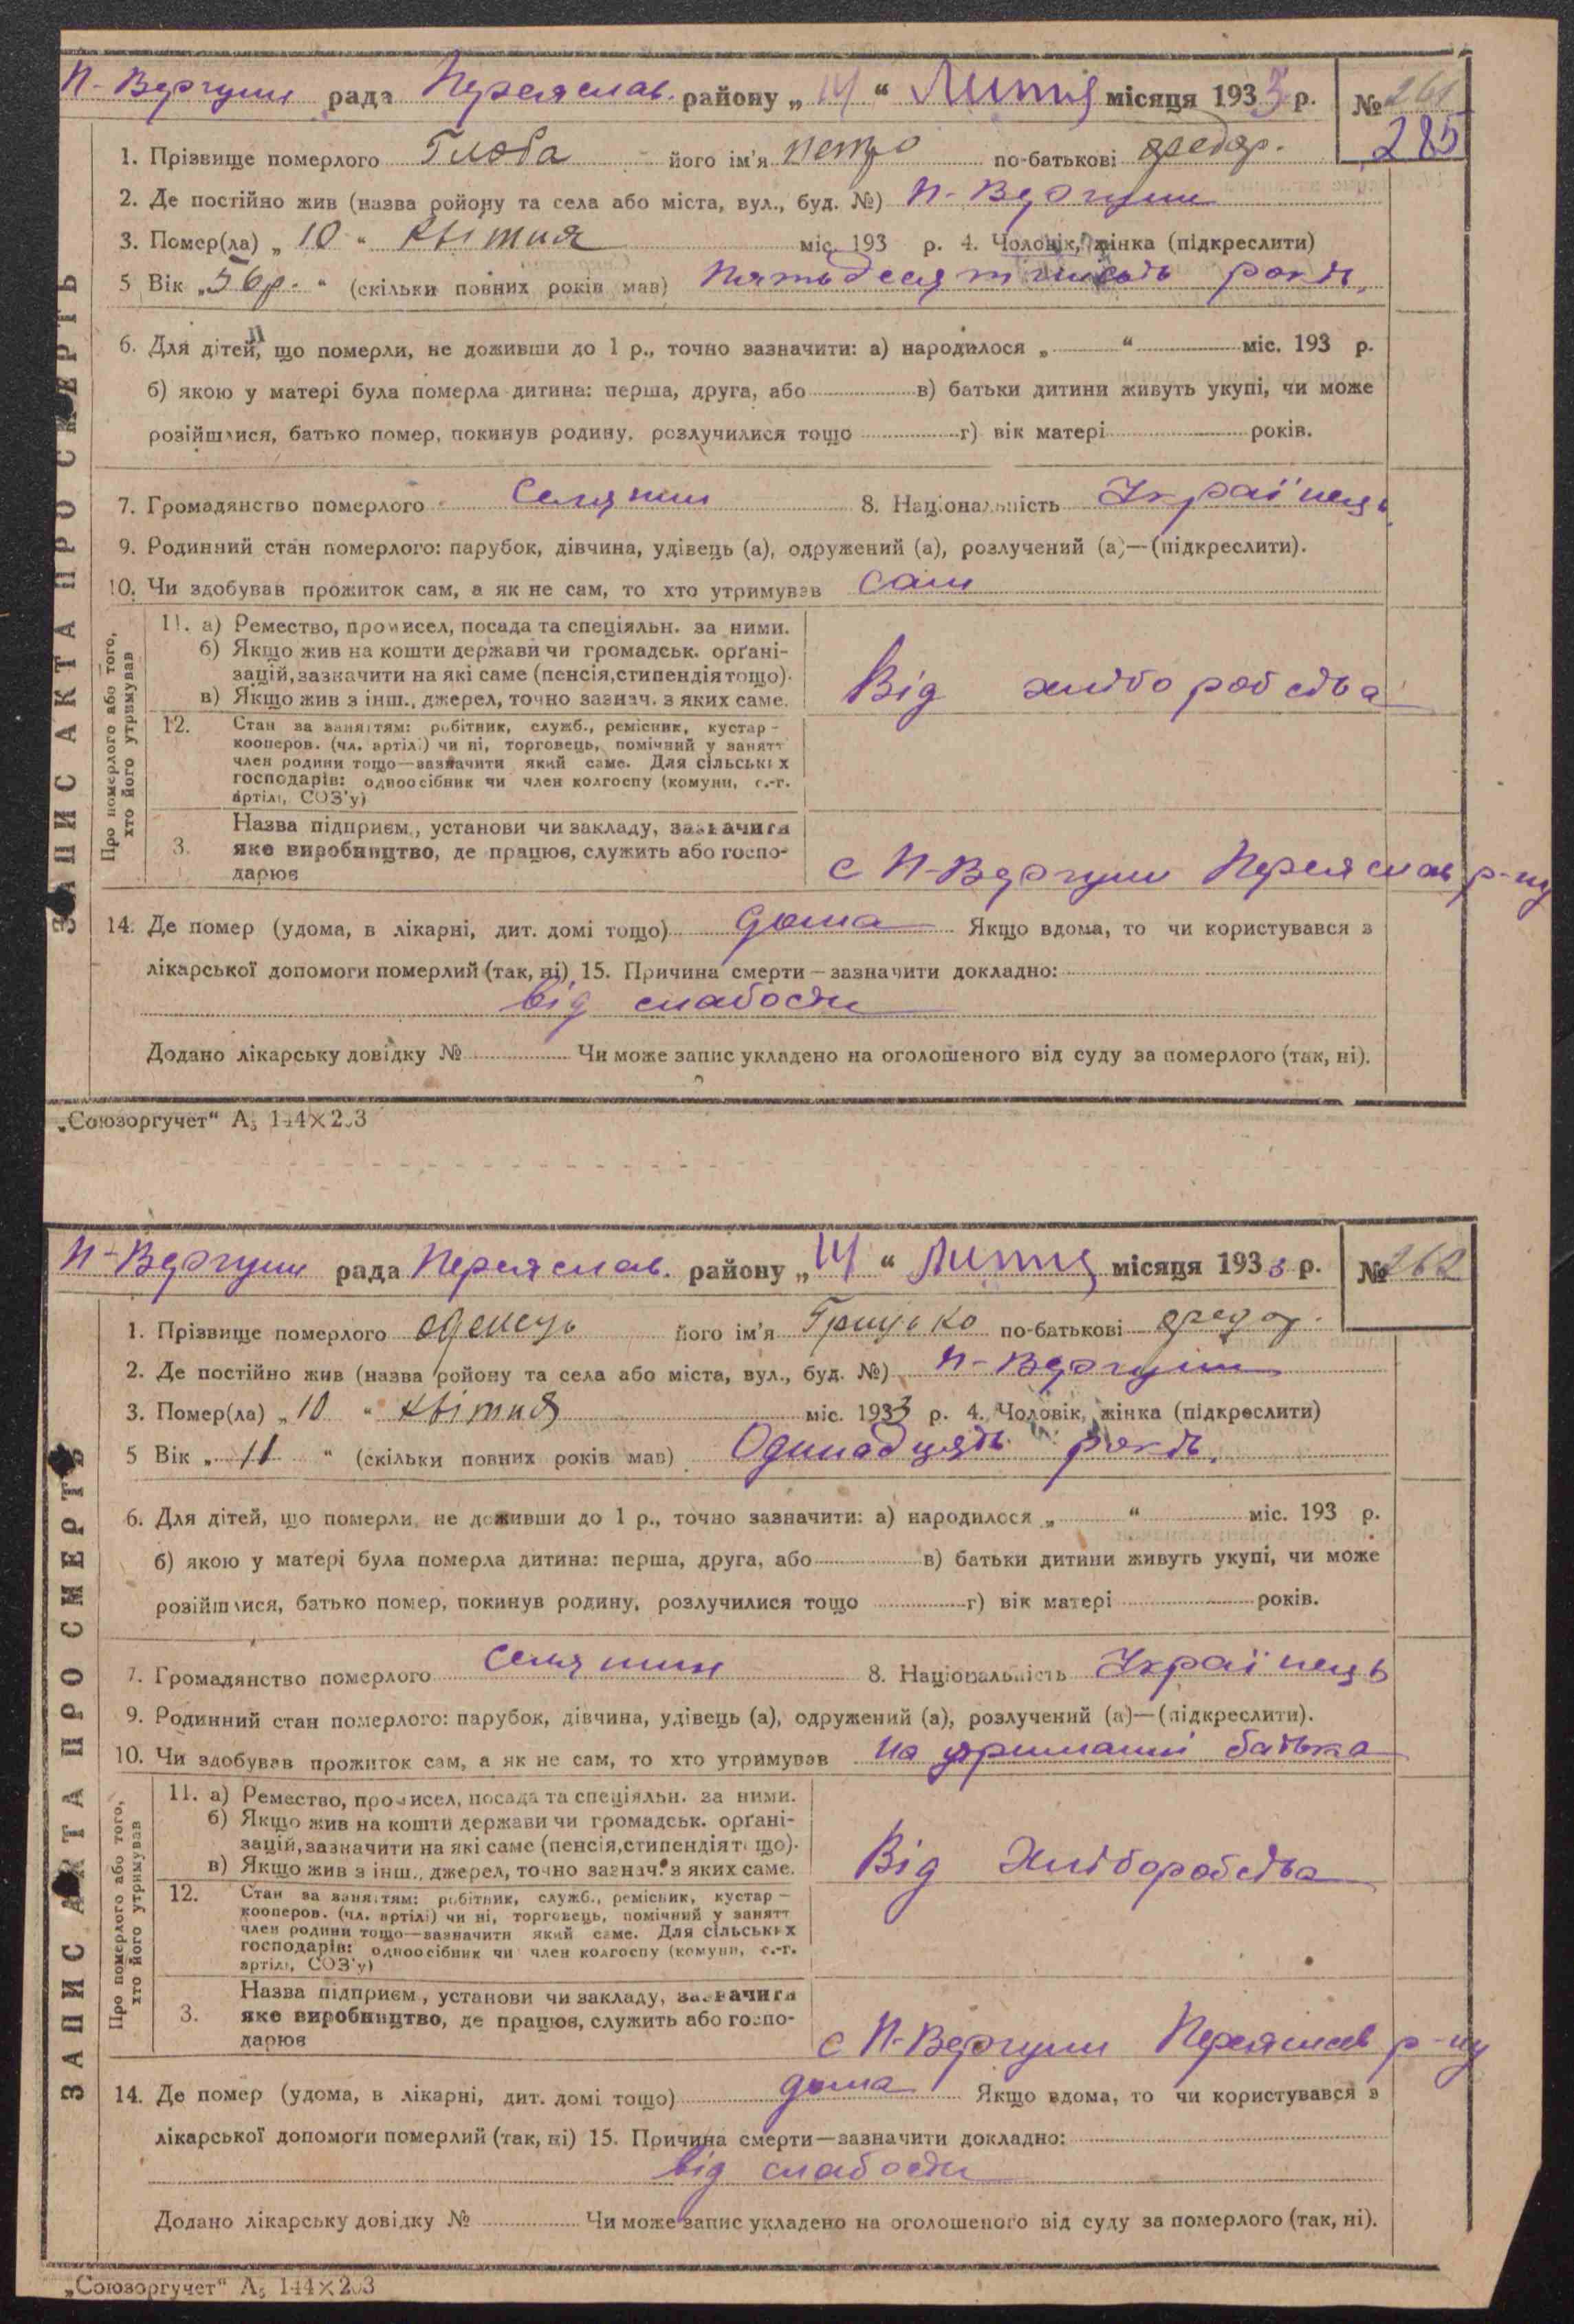 П-Вергуни рада Переяслав. району „ 14 “ Липня місяця 1933 р. № 261
285
1. Прізвище померлого Глоба його ім'я Петро по-батькові Федор.
2. Де постійно жив (назва ройону та села або міста, вул., буд. №) П-Вергуни
3. Помер(ла) „ 10 “ квітня міс. 193 р. 4. Чоловік, жінка (підкреслити)
5 Вік „ 56 р. “ (скільки повних років мав) Пятьдесят шість років.
6. Для дітей, що померли, не доживши до 1 р., точно зазначити: а) народилося „ “ міс. 193 р.
б) якою у матері була померла дитина: перша, друга, або в) батьки дитини живуть укупі, чи може
розійшлися, батько помер, покинув родину, розлучилися тощо г) вік матері років.
7. Громадянство померлого Селянин 8. Національність Українець
9. Родинний стан померлого: парубок, дівчина, удівець (а), одружений (а), розлучений (а)—(підкреслити).
10. Чи здобував прожиток сам, а як не сам, то хто утримував Сам
ЗАПИС АКТА ПРО СМЕРТЬ
Про померлого або того,
хто його утримував
11. а) Ремество, промисел, посада та спеціяльн. за ними.
б) Якщо жив на кошти держави чи громадськ. орґані-
зацій, зазначити на які саме (пенсія, стипендія тощо).
в) Якщо жив з інш., джерел, точно зазнач. з яких саме.
Від хліборобства
12. Стан за заняттям: робітник, служб., ремісник, кустар—
кооперов. (чл. артілі) чи ні, торговець, помічний у занятт
член родини тощо—зазначити який саме. Для сільських
господарів: одноосібник чи член колгоспу (комуни, с.-г.
артілі, СОЗ'у)
3. Назва підприєм., установи чи закладу, зазначити
яке виробництво, де працює, служить або госпо-
дарює
с П-Вергуни Переяслав р-ну
14. Де помер (удома, в лікарні, дит. домі тощо) дома Якщо вдома, то чи користувався з
лікарської допомоги померлий (так, ні) 15. Причина смерти—зазначити докладно:
від слабости
Додано лікарську довідку № Чи може запис укладено на оголошеного від суду за померлого (так, ні).
„Союзоргучет“ А5 144×203
П-Вергуни рада Переяслав. району „ 14 “ Липня місяця 1933 р. № 262
1. Прізвище померлого Оденець його ім'я Грицько по-батькові Федор.
2. Де постійно жив (назва ройону та села або міста, вул., буд. №) П-Вергуни
3. Помер(ла) „ 10 “ квітня міс. 1933 р. 4. Чоловік, жінка (підкреслити)
5 Вік „ 11 “ (скільки повних років мав) Одинадцять років.
6. Для дітей, що померли, не доживши до 1 р., точно зазначити: а) народилося „ “ міс. 193 р.
б) якою у матері була померла дитина: перша, друга, або в) батьки дитини живуть укупі, чи може
розійшлися, батько помер, покинув родину, розлучилися тощо г) вік матері років.
7. Громадянство померлого Селянин 8. Національність Українець
9. Родинний стан померлого: парубок, дівчина, удівець (а), одружений (а), розлучений (а)—(підкреслити).
10. Чи здобував прожиток сам, а як не сам, то хто утримував на утриманні батька
ЗАПИС АКТА ПРО СМЕРТЬ
Про померлого або того,
хто його утримував
11. а) Ремество, промисел, посада та спеціяльн. за ними.
б) Якщо жив на кошти держави чи громадськ. орґані-
зацій, зазначити на які саме (пенсія, стипендія тощо).
в) Якщо жив з інш., джерел, точно зазнач. з яких саме.
Від Хліборобства
12. Стан за заняттям: робітник, служб., ремісник, кустар—
кооперов. (чл. артілі) чи ні, торговець, помічний у занятт
член родини тощо—зазначити який саме. Для сільських
господарів: одноосібник чи член колгоспу (комуни, с.-г.
артілі, СОЗ'у)
3. Назва підприєм., установи чи закладу, зазначити
яке виробництво, де працює, служить або госпо-
дарює
с П-Вергуни Переяслав р-ну
14. Де помер (удома, в лікарні, дит. домі тощо) дома Якщо вдома, то чи користувався з
лікарської допомоги померлий (так, ні) 15. Причина смерти—зазначити докладно:
від слабости
Додано лікарську довідку № Чи може запис укладено на оголошеного від суду за померлого (так, ні).
„Союзоргучет“ А5 144×203